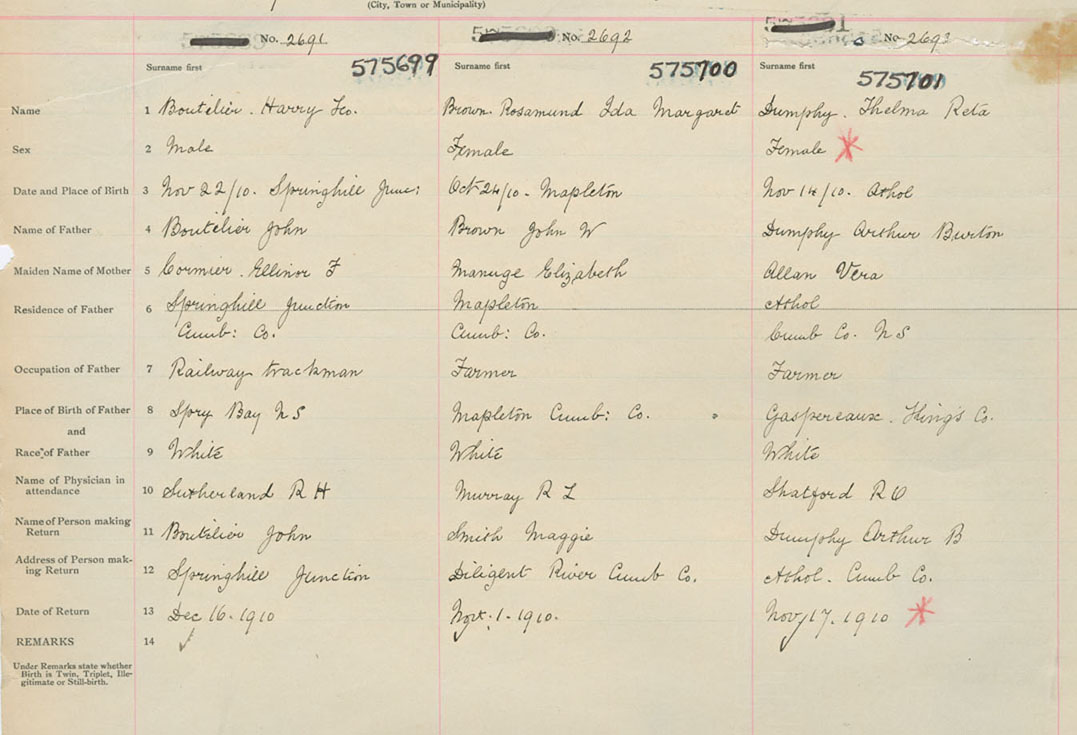 (City, Town or Municipality)
No. 2691 No. 2692 No. 2693
575699 575700 575701
Surname first Surname first Surname first
Name 1 Boutelier. Harry Geo. Brown. Rosamund Ida Margaret Dumphy. Thelma Reta
Sex 2 Male Female Female
Date and Place of Birth 3 Nov 22/10. Springhill Junc: Oct 24/10. Mapleton Nov 14/10. Athol
Name of Father 4 Boutelier John Brown John W Dumphy Arthur Burton
Maiden Name of Mother 5 Cormier. Ellinor F Manuge Elizabeth Allan Vera
Residence of Father 6 Springhill Junction Mapleton Athol
Cumb: Co. Cumb: Co. Cumb Co. N S
Occupation of Father 7 Railway trackman Farmer Farmer
Place of Birth of Father 8 Spry Bay N S Mapleton Cumb: Co. Gaspereaux. King's Co.
and
Race of Father 9 White White White
Name of Physician in
attendance 10 Sutherland R H Murray R L Shatford R O
Name of Person making
Return 11 Boutelier John Smith Maggie Dumphy Arthur B
Address of Person mak-
ing Return 12 Springhill Junction Diligent River Cumb Co. Athol. Cumb Co.
Date of Return 13 Dec 16. 1910 Nov. 1. 1910. Nov 17. 1910
REMARKS 14
Under Remarks state whether
Birth is Twin, Triplet, Ille-
gitimate or Still-birth.